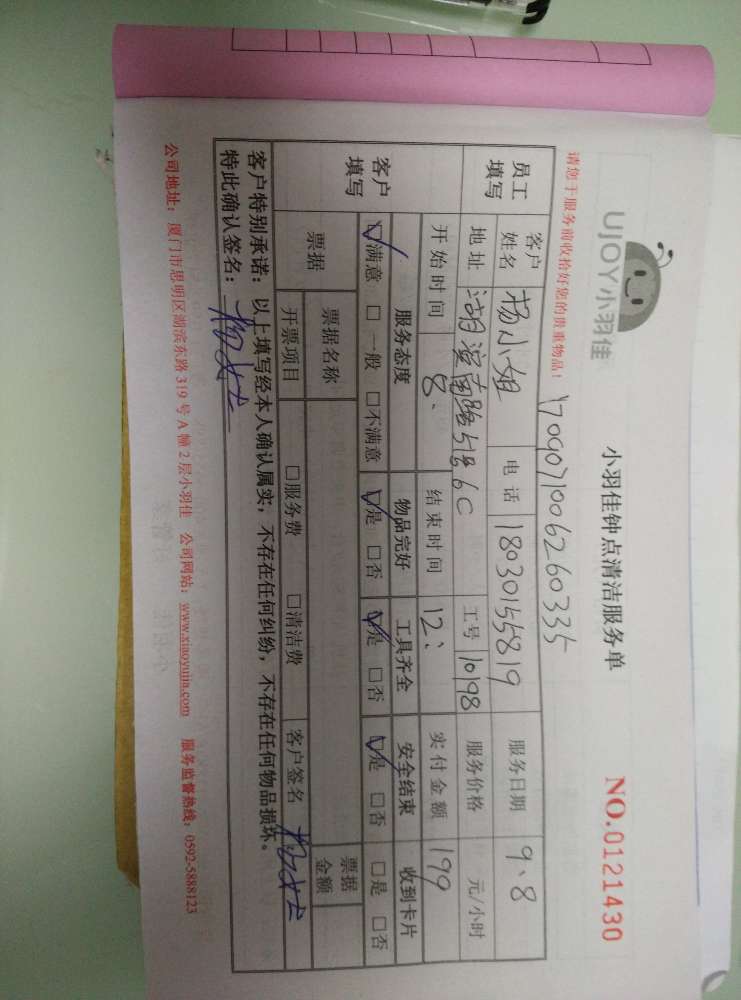 UJOY小羽佳
小羽佳钟点清洁服务单
NO.0121430
请您于服务前收拾好您的贵重物品！
1709071006260335
员工填写 客户姓名 杨小姐 电话 18030155819 服务日期 9、8
地址 湖滨南路51号6C 工号 10198 服务价格 元/小时
开始时间 8、 结束时间 12、 实付金额 199
客户填写 服务态度 物品完好 工具齐全 安全结束 收到卡片
☑满意 □一般 □不满意 ☑是 □否 ☑是 □否 ☑是 □否 □是 □否
票据 票据名称 票据金额
开票项目 □服务费 □清洁费 客户签名
客户特别承诺：以上填写经本人确认属实，不存在任何纠纷，不存在任何物品损坏。
特此确认签名：
公司地址：厦门市思明区湖滨东路319号A幢2层小羽佳 公司网站：www.xiaoyujia.com 服务监督热线：0592-5888123